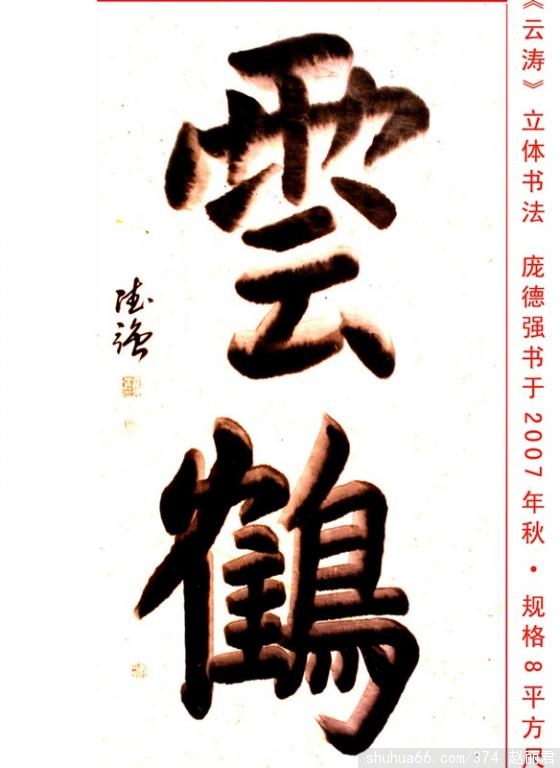 雲鶴
德強
《云涛》立体书法 庞德强书于2007年秋·规格8平方尺
shuhua66.com/374 赵丽君